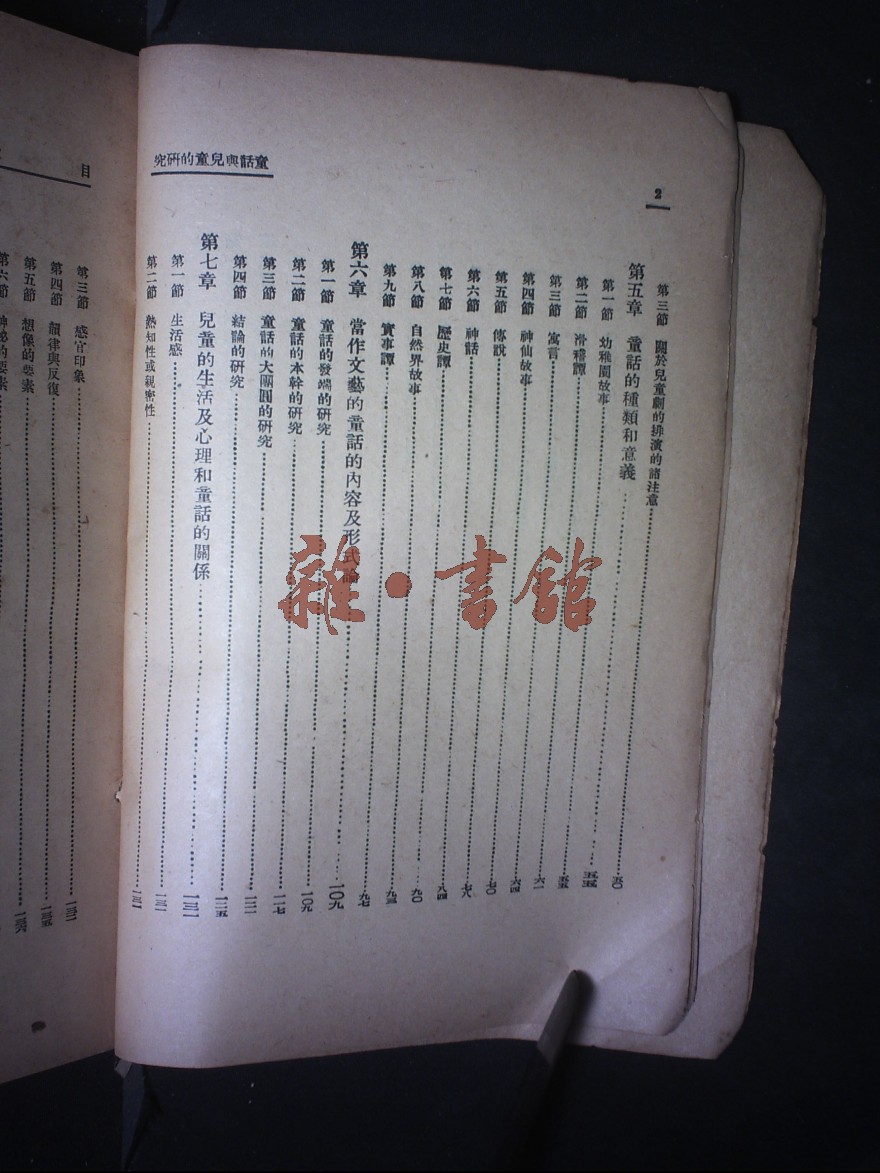 童話與兒童的研究
2
第三節 關於兒童劇的排演的諸注意 五〇
第五章 童話的種類和意義 五五
第一節 幼稚園故事 五五
第二節 滑稽譚 五五
第三節 寓言 六一
第四節 神仙故事 六四
第五節 傳說 七〇
第六節 神話 七八
第七節 歷史譚 八四
第八節 自然界故事 九〇
第九節 實事譚 九三
第六章 當作文藝的童話的內容及形式論 一〇九
第一節 童話的發端的研究 一〇九
第二節 童話的本幹的研究
第三節 童話的大團圓的研究
第四節 結論的研究
第七章 兒童的生活及心理和童話的關係 一三一
第一節 生活感 一三一
第二節 熟知性或親密性 一三一
目
第三節 感官印象 一三二
第四節 韻律與反復 一三五
第五節 想像的要素 一三六
第六節 神祕的要素
雜·書館